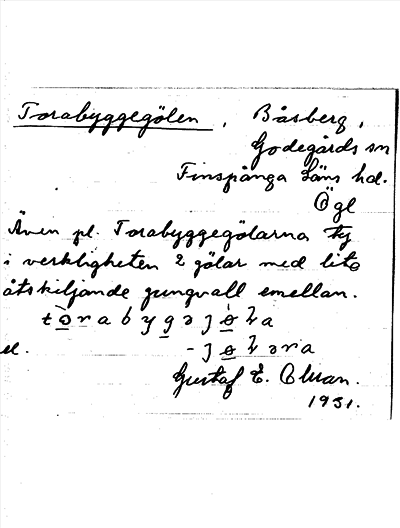 Torabyggegölen, Båsberg,
Godegårds sn
Finspånga läns hd.
Ögl
Även pl. Torabyggegölarna ty
i verkligheten 2 gölar med lite
åtskiljande gungvall emellan.
el.
Gustaf E.
1931.